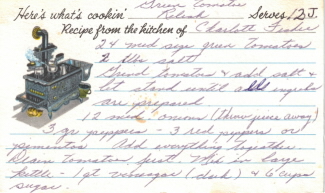 Green Tomatoe
Here's what's cookin' Relish Serves 12 J.
Recipe from the kitchen of Charlotte
24 med size green tomatoes
2 salt
Grind tomatoes & add salt &
let stand until
are prepared
12 med onions (throw juice away)
3 gr peppers - 3 red peppers or
pimentos Add everything together.
Drain tomatoes first. Mix in large
kettle - 1 qt vinegar (dark) & 6 cups
sugar.